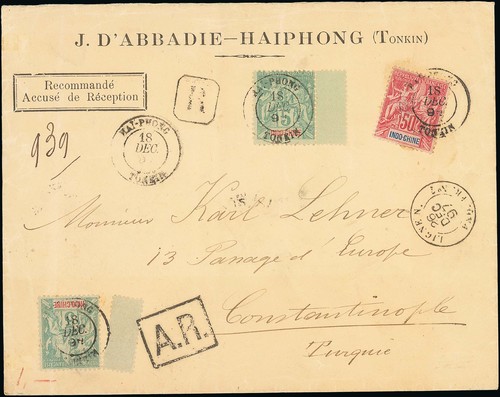 J. D'ABBADIE—HAIPHONG (TONKIN)
Recommandé
Accusé de Réception
R
939
HAI-PHONG
18
DEC.
TONKIN
HAI-PHONG
18
DEC.
TONKIN
5
50
INDO-CHINE
18
DEC.
TONKIN
LIGNE N
Monsieur Karl Lehner
13 Panage d'Europe
Constantinople
Turquie
INDO-CHINE
18
DEC.
A.R.
1,—